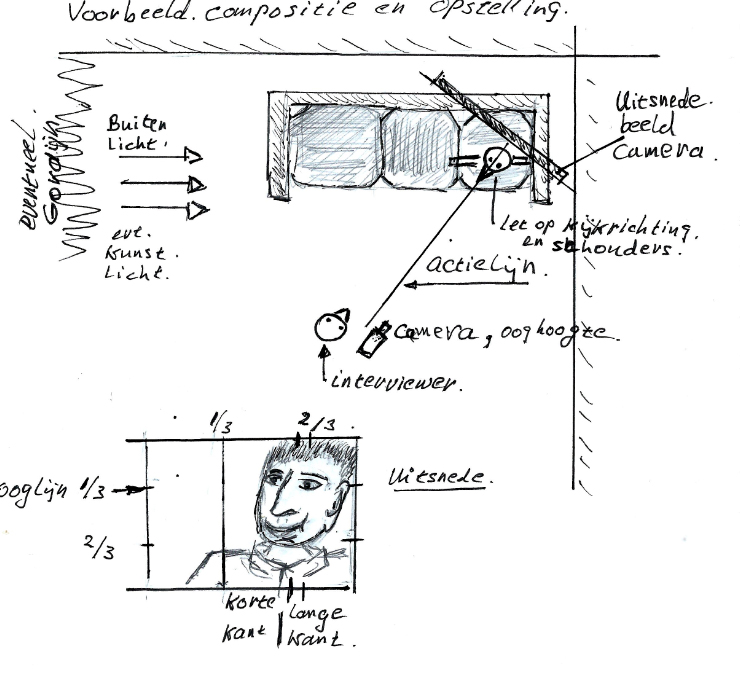 Voorbeeld. compositie en opstelling.
eventueel.
Gordijn
Buiten
Licht.
evt.
kunst.
Licht.
Uitsnede.
beeld
camera.
Let op kijkrichting.
en schouders.
actielijn.
camera, ooghoogte.
interviewer.
1/3
2/3
ooglijn 1/3
2/3
Uitsnede.
korte
kant
Lange
kant.